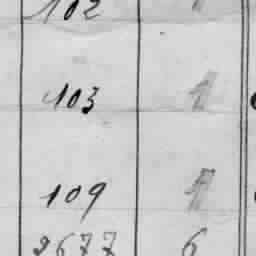 102 1
103 1
109 1
2677 6